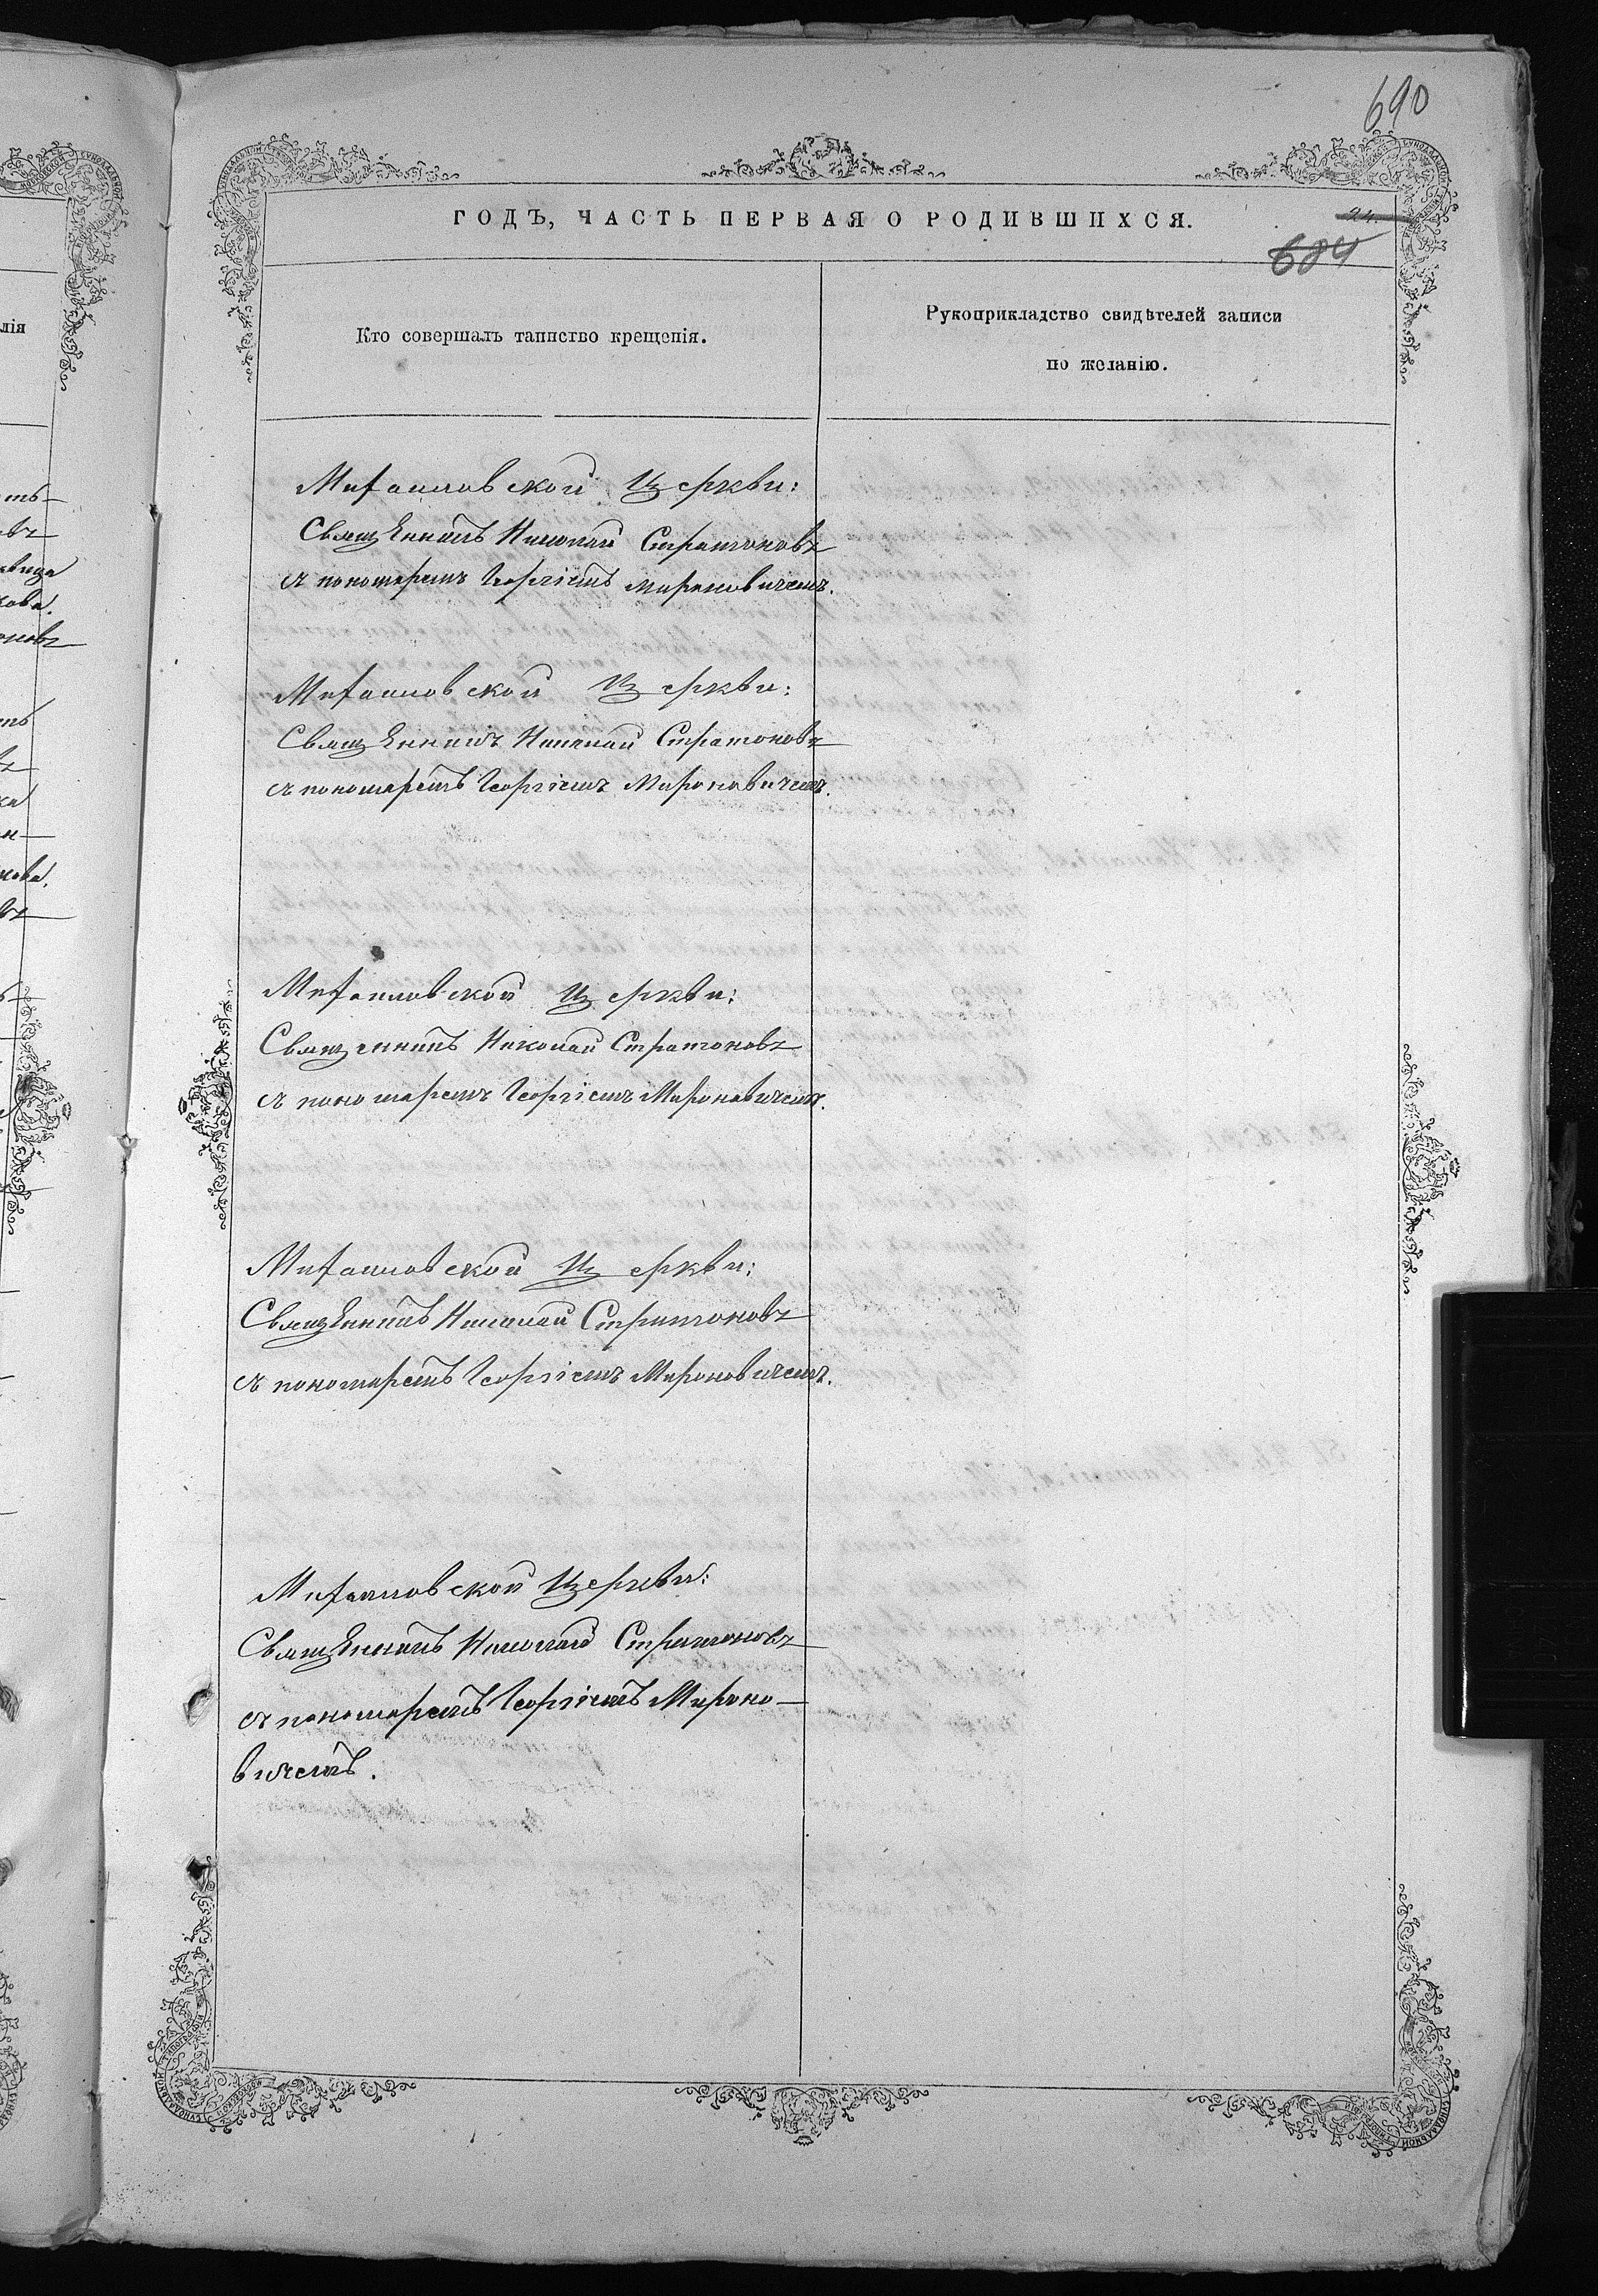 690
ГОДЪ, ЧАСТЬ ПЕРВАЯ О РОДИВШИХСЯ.
24.
684
Кто совершалъ таинство крещенія.
Рукоприкладство свидѣтелей записи
по желанію.
Михаиловской Церкви:
Священникъ Николай Стратоновъ
съ пономаремъ Георгіемъ Мироновичемъ.
Михаиловской Церкви:
Священникъ Николай Стратоновъ
съ пономаремъ Георгіемъ Мироновичемъ.
Михаиловской Церкви:
Священникъ Николай Стратоновъ
съ пономаремъ Георгіемъ Мироновичемъ.
Михаиловской Церкви:
Священникъ Николай Стратоновъ
съ пономаремъ Георгіемъ Мироновичемъ.
Михаиловской Церкви:
Священникъ Николай Стратоновъ
съ пономаремъ Георгіемъ Мироно-
вичемъ.